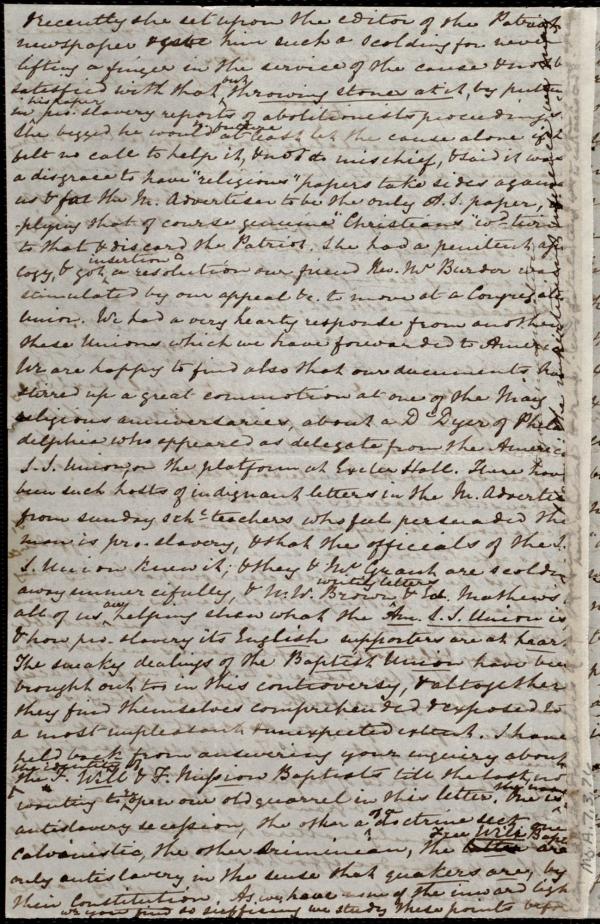 & recently she set upon the editor of the Patriot
newspaper & gave him such a scolding for never
lifting a finger in the service of the cause & not b
satisfied with that, but throwing stones at it, by putti
in his paper pro. slavery reports of abolitionists proceedings
She begged he would at least let the cause alone if h
felt no call to help it, & not do mischief, & said it was
a disgrace to have "religious" papers take sides again
us & for the M. Advertiser to be the only A.S. paper,
-plying that of course genuine "Christians" wd. turn
to that & discard the Patriot. She had a penitent apo
logy, & got insertion of a resolution our friend Rev. Mr Burdor was
stimulated by our appeal &c. to move at a Congregat
Union. We had a very hearty response from another
these Unions which we have forwarded to America
We are happy to find also that our documents ha
stirred up a great commotion at one of the May
religious anniversaries, about a Dr Dyer of Phil
delphia who appeared as delegate from the America
S.S. Union on the platform at Exeter Hall. There have
been such hosts of indignant letters in the M. Advertis
from sunday schl. teachers who feel persuaded the
man is pro. slavery, & that the officials of the S.
S. Union knew it; & they & Mr Grant are scoldin
away unmercifully, & W.W. Brown & Ed. Mathews writing letters &
all of us are helping shew what the Am. S.S. Union is
& how pro. slavery its English supporters are at hear
The sneaky dealings of the Baptist Union have bee
brought out too in this controversy, & altogether
they find themselves comprehended & exposed to
a most unpleasant & unexpected extent. I have
held back from answering your inquiry about
the identity of the F. Will & F. Mission Baptists till the last, no
wanting to open our old quarrel in this letter. The one is
antislavery secession, the other a doctrine sect
calvinistic, the other Arminian, the Free Will Bapts. are
only antislavery in the sense that quakers are, by
their Constitution. As we have none of the inward ligh
we you find so sufficing we study these points befo
Ms. A. 7. 3. 76